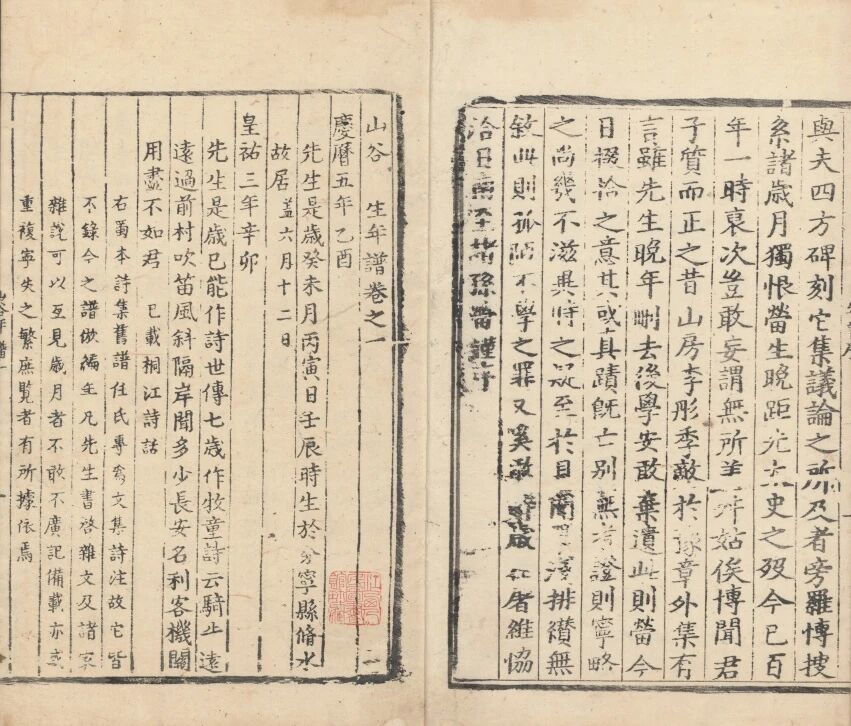 與夫四方碑刻它集議論之所及者旁羅博搜
系諸歲月獨恨㽦生晚距太史之歿今已百
年一時裒次豈敢妄謂無所姑俟博聞君
子質而正之昔山房李彤季敵於豫章外集有
言雖先生晚年刪去後學安敢棄遺此則㽦今
日掇拾之意其或真蹟旣亡別無考證則寧略
之尚幾不滋異時之疑至於目淺排纉無
敘此則孤陋不學之罪又奚敢辭歲維協
洽日南至諸孫㽦謹序
山谷 生年譜卷之一
慶曆五年乙酉
先生是歲癸未月丙寅日壬辰時生於分寧縣脩水
故居 蓋六月十二日
皇祐三年辛卯
先生是歲已能作詩世傳七歲作牧童詩云騎牛遠
遠過前村吹笛風斜隔岸聞多少長安名利客機關
用盡不如君 已載桐江詩話
右蜀本詩集舊譜任氏專為文集詩注故它皆
不錄今之譜倣編年凡先生書啓雜文及諸家
雜說可以互見歲月者不敢不廣記備載亦或
重複寧失之繁庶覽者有所據依焉